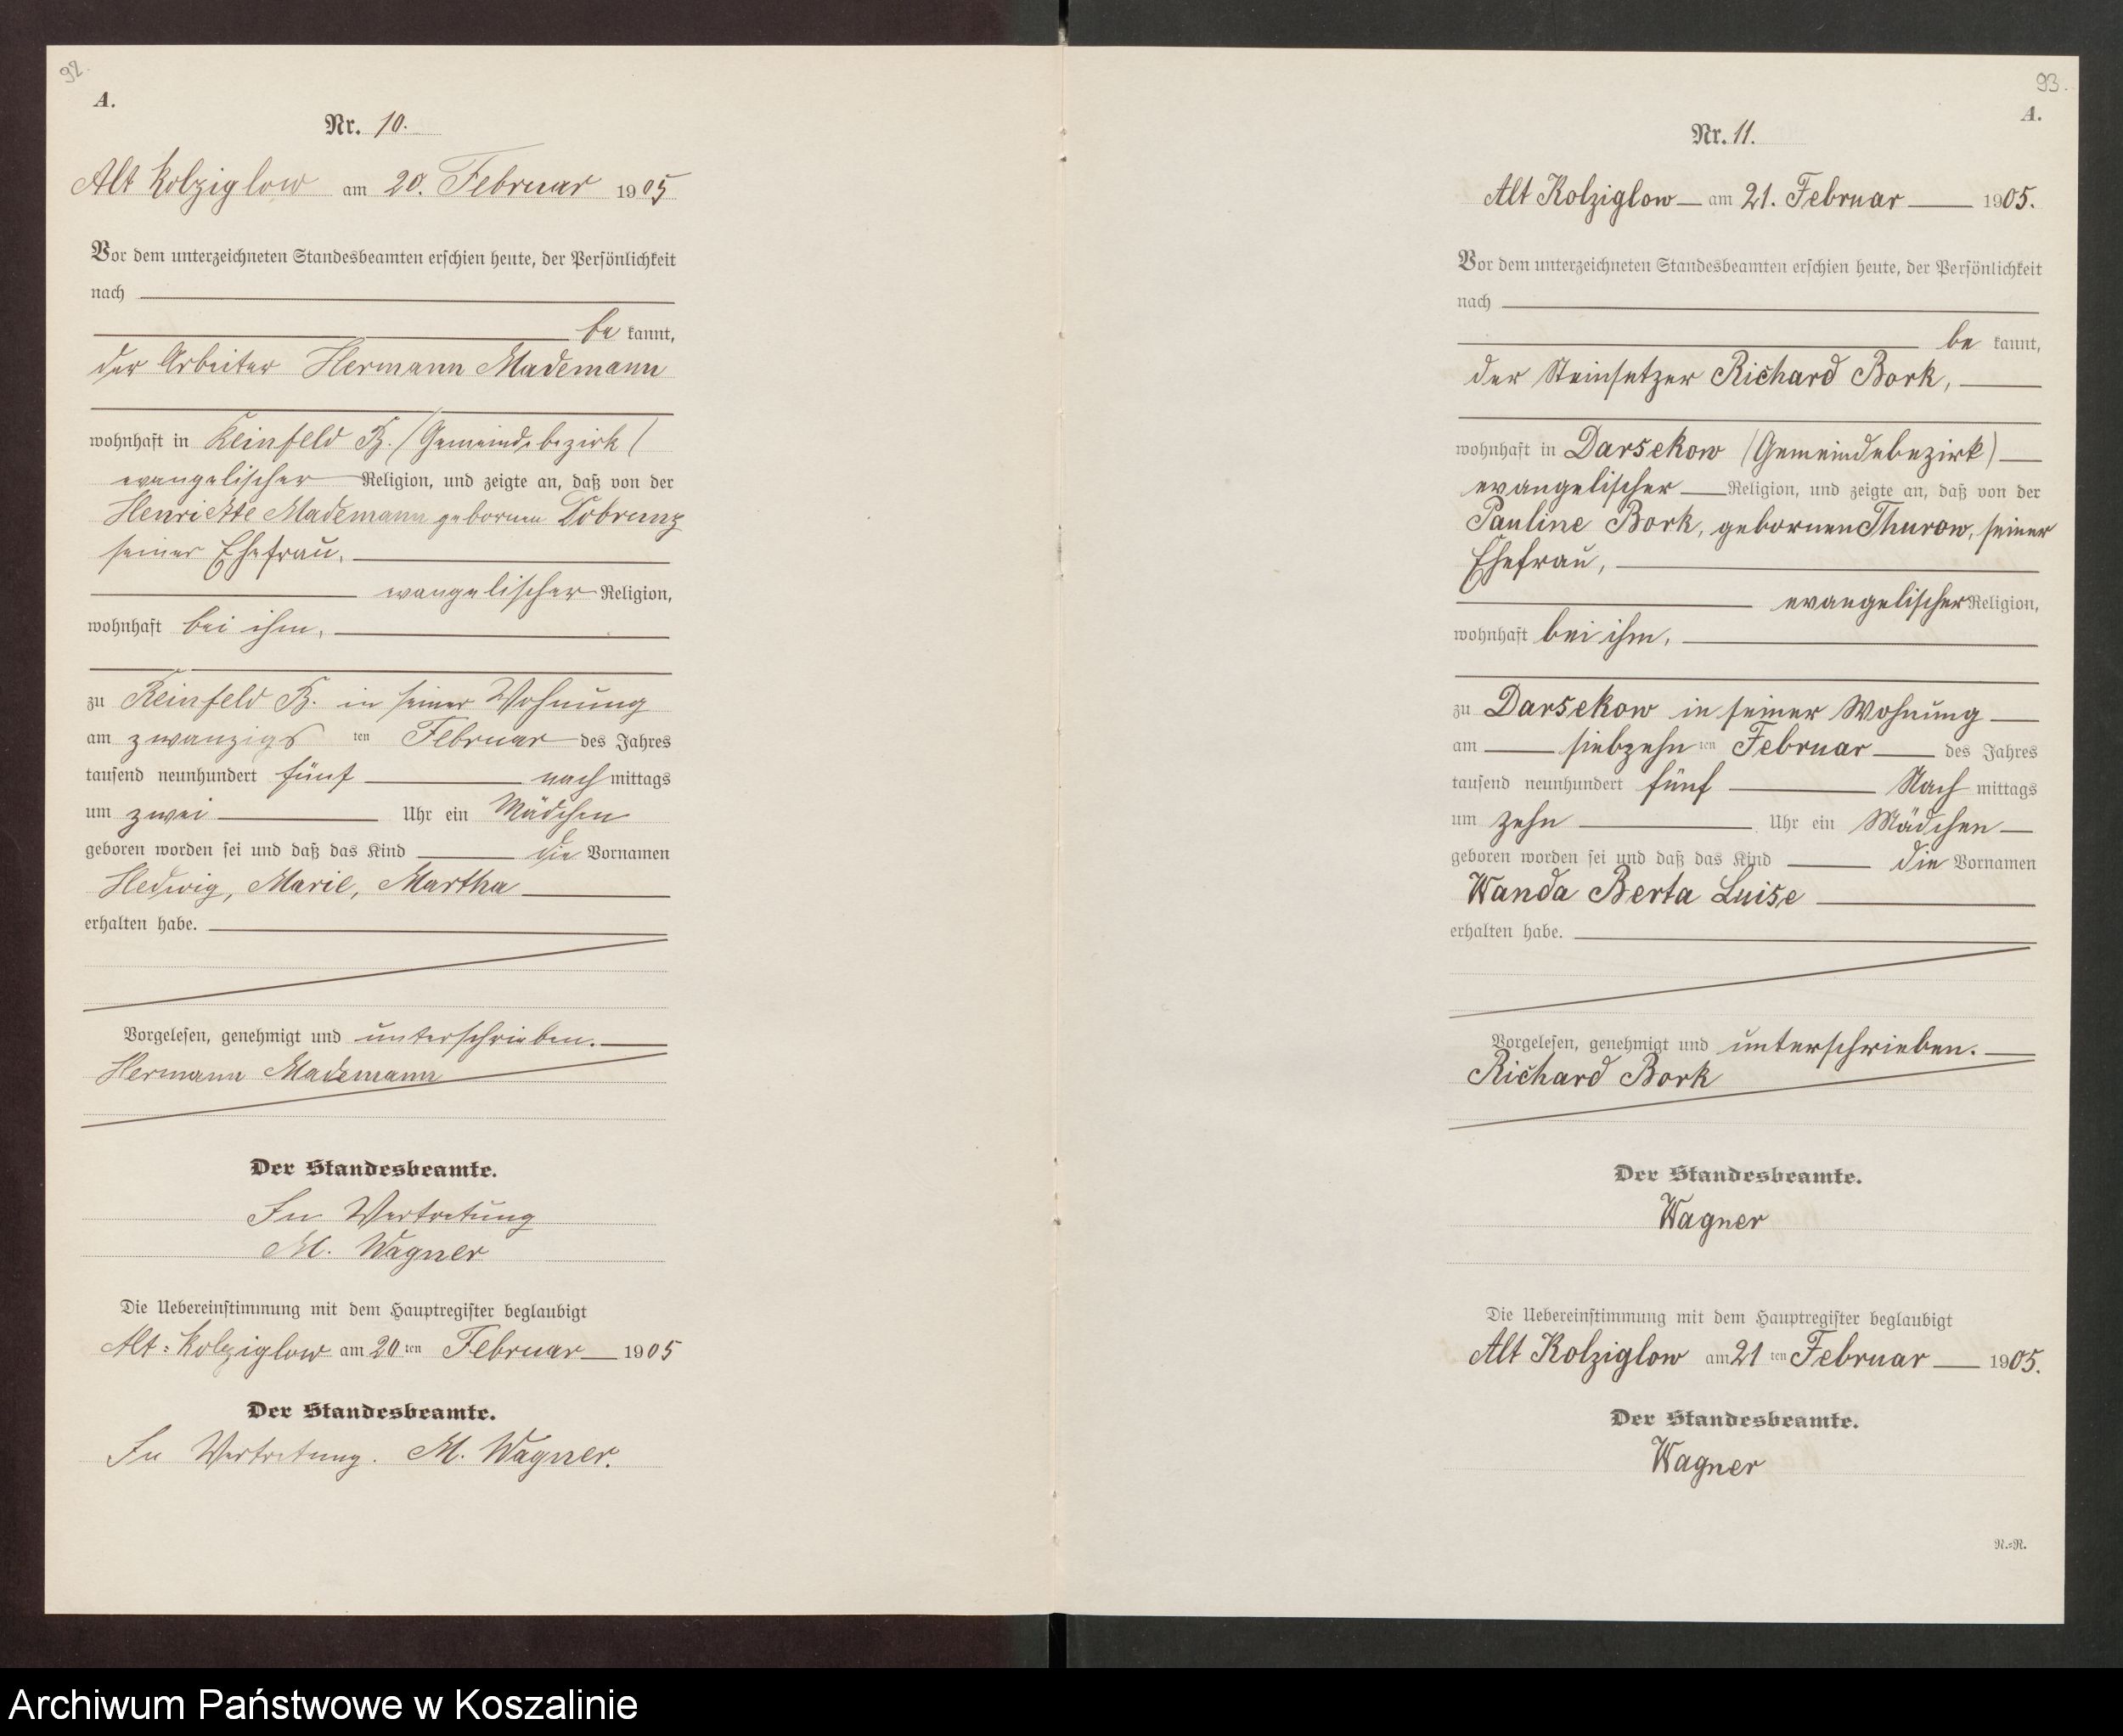 92.
A.
Nr. 10.
Alt Kolziglow am 20. Februar 1905
Vor dem unterzeichneten Standesbeamten erschien heute, der Persönlichkeit
nach
be kannt,
der Arbeiter Hermann Mademann
wohnhaft in Reinfeld B. (Gemeindebezirk)
evangelischer Religion, und zeigte an, daß von der
Henriette Mademann gebornen Dobrunz
seiner Ehefrau,
evangelischer Religion,
wohnhaft bei ihm,
zu Reinfeld B. in seiner Wohnung
am zwanzigs ten Februar des Jahres
tausend neunhundert fünf nach mittags
um zwei Uhr ein Mädchen
geboren worden sei und daß das Kind die Vornamen
Hedwig, Marie, Martha
erhalten habe.
Vorgelesen, genehmigt und unterschrieben.
Hermann Mademann
Der Standesbeamte.
In Vertretung
M. Wagner
Die Uebereinstimmung mit dem Hauptregister beglaubigt
Alt-Kolziglow am 20 ten Februar 1905
Der Standesbeamte.
In Vertretung. M. Wagner.
93.
A.
Nr. 11.
Alt Kolziglow am 21. Februar 1905.
Vor dem unterzeichneten Standesbeamten erschien heute, der Persönlichkeit
nach
be kannt,
der Steinsetzer Richard Bork,
wohnhaft in Darsekow (Gemeindebezirk)
evangelischer Religion, und zeigte an, daß von der
Pauline Bork, gebornen Thurow, seiner
Ehefrau,
evangelischer Religion,
wohnhaft bei ihm,
zu Darsekow in seiner Wohnung
am siebzehn ten Februar des Jahres
tausend neunhundert fünf Nach mittags
um zehn Uhr ein Mädchen
geboren worden sei und daß das Kind die Vornamen
Wanda Berta Luise
erhalten habe.
Vorgelesen, genehmigt und unterschrieben.
Richard Bork
Der Standesbeamte.
Wagner
Die Uebereinstimmung mit dem Hauptregister beglaubigt
Alt Kolziglow am 21 ten Februar 1905.
Der Standesbeamte.
Wagner
N.=R.
Archiwum Państwowe w Koszalinie